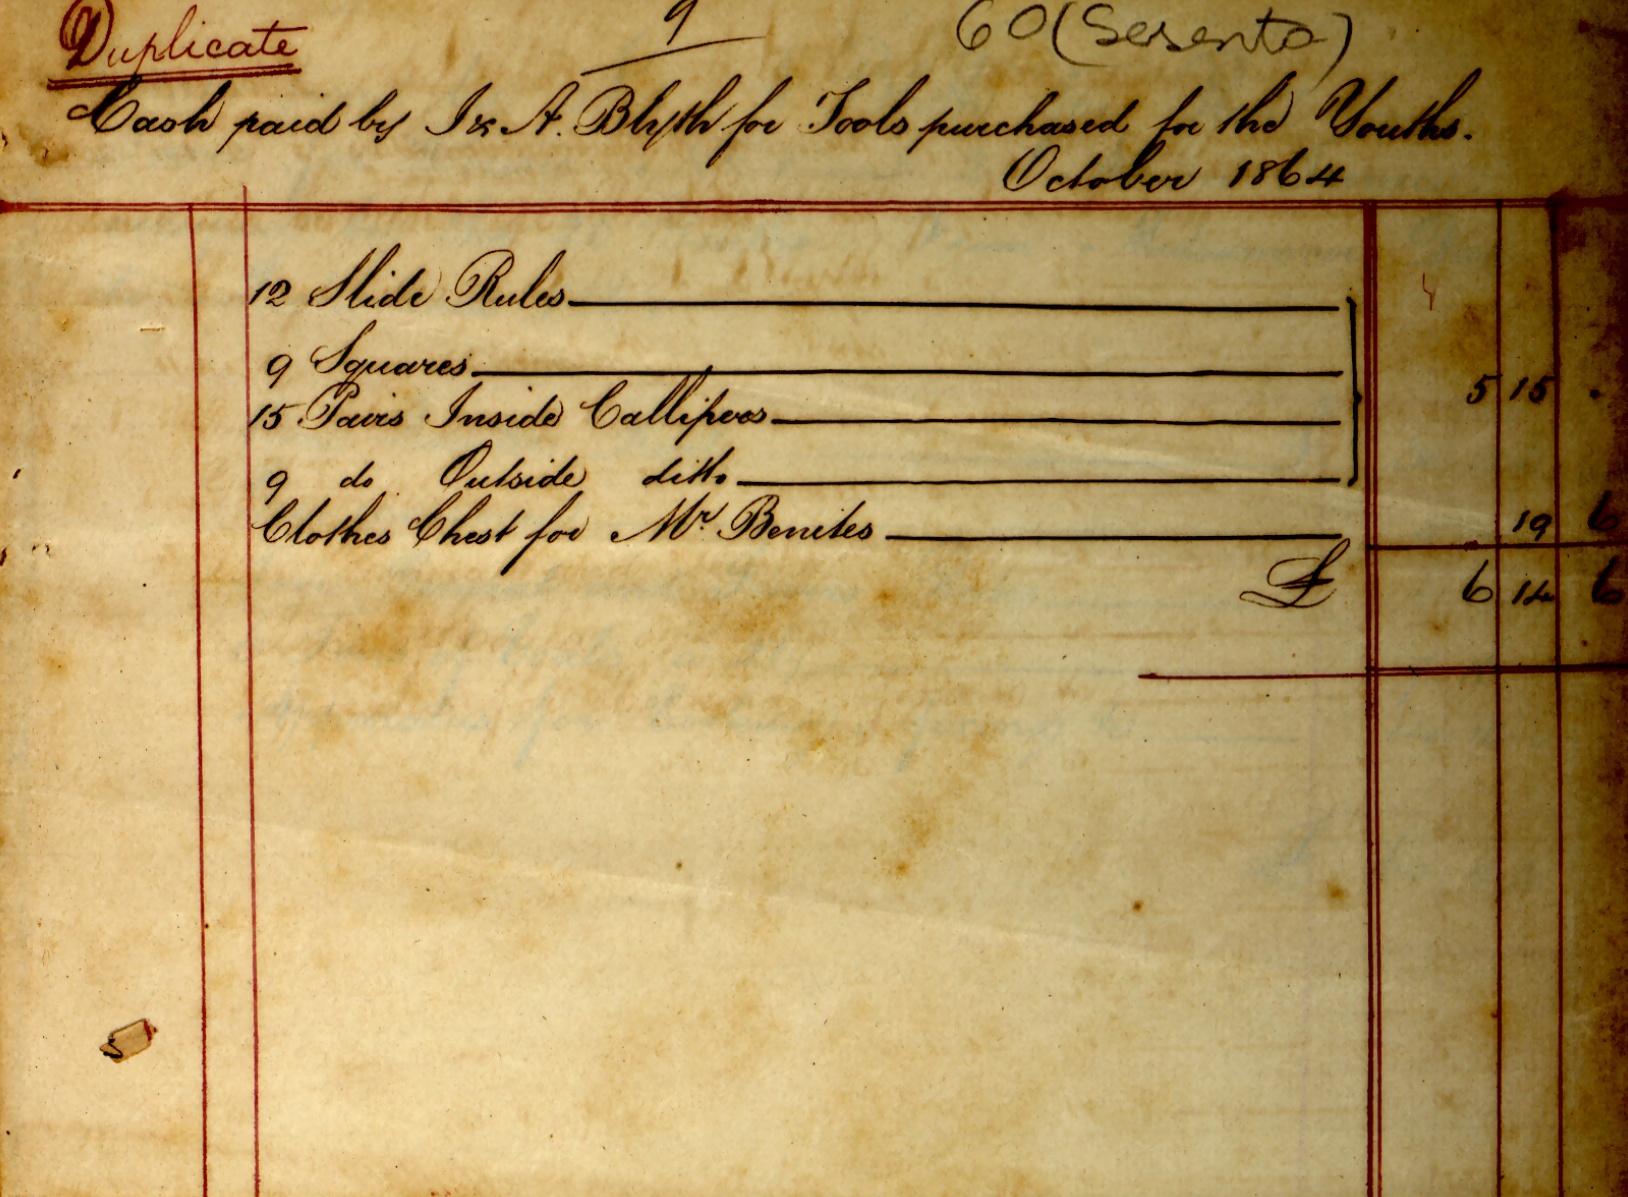 Duplicate
9
60 (Sesenta)
Cash paid by J & A. Blyth for Tools purchased for the Youths.
October 1864
12 Slide Rules
9 Squares
15 Pairs Inside Callipers
5 15 .
9 do Outside ditto
Clothes Chest for Mr. Benites 19 6
£ 6 14 6